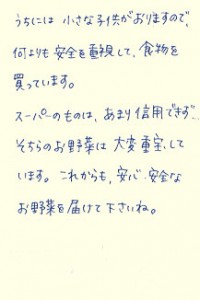 うちには 小さな子供がおりますので、
何よりも 安全を重視して、食物を
買っています。
スーパーのものは、あまり信用できず…
そちらのお野菜は 大変重宝して
います。これからも、安心・安全な
お野菜を届けて下さいね。